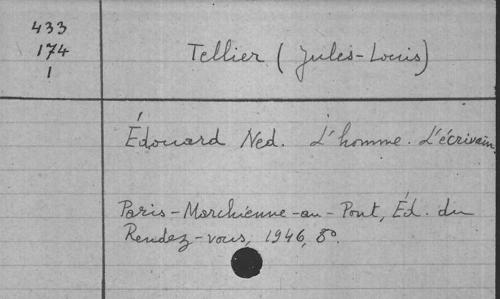 433
174
1
Tellier (Jules-Louis)
Édouard Ned. L'homme. L'écrivain
Paris-Marchienne-au-Pont, Éd. du
Rendez-vous, 1946, 8º.